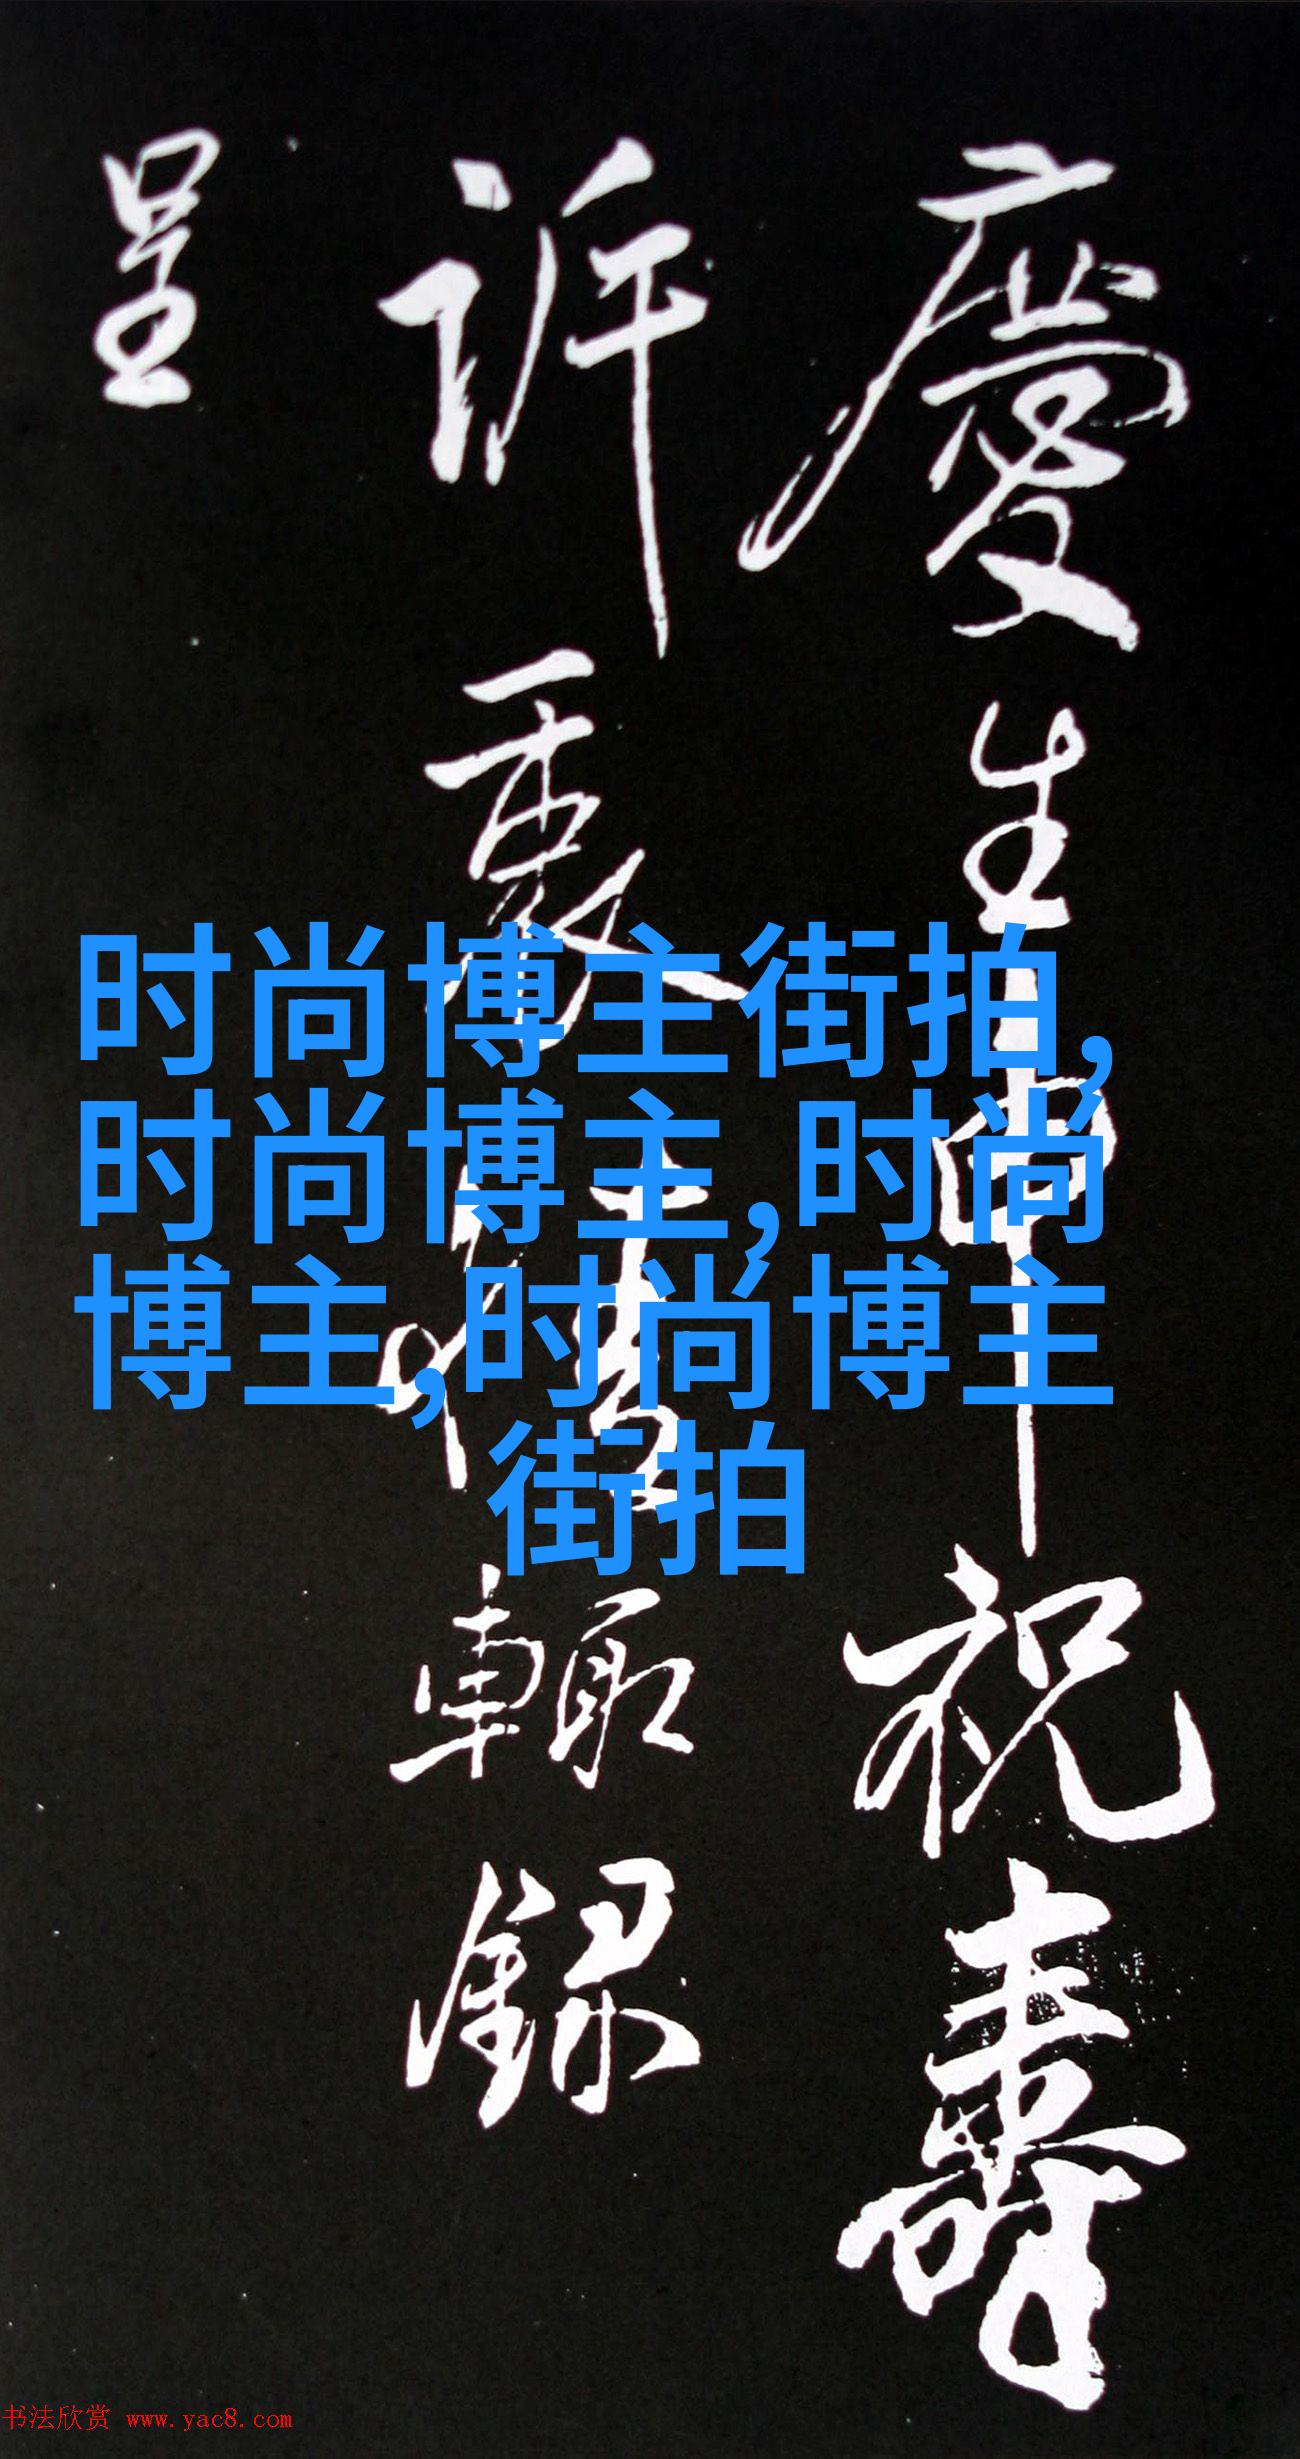 慶生申祝壽
訢衷情輒錄
呈
时尚博主街拍,
时尚博主,时尚
博主,时尚博主
街拍
书法欣赏 www.yac8.com